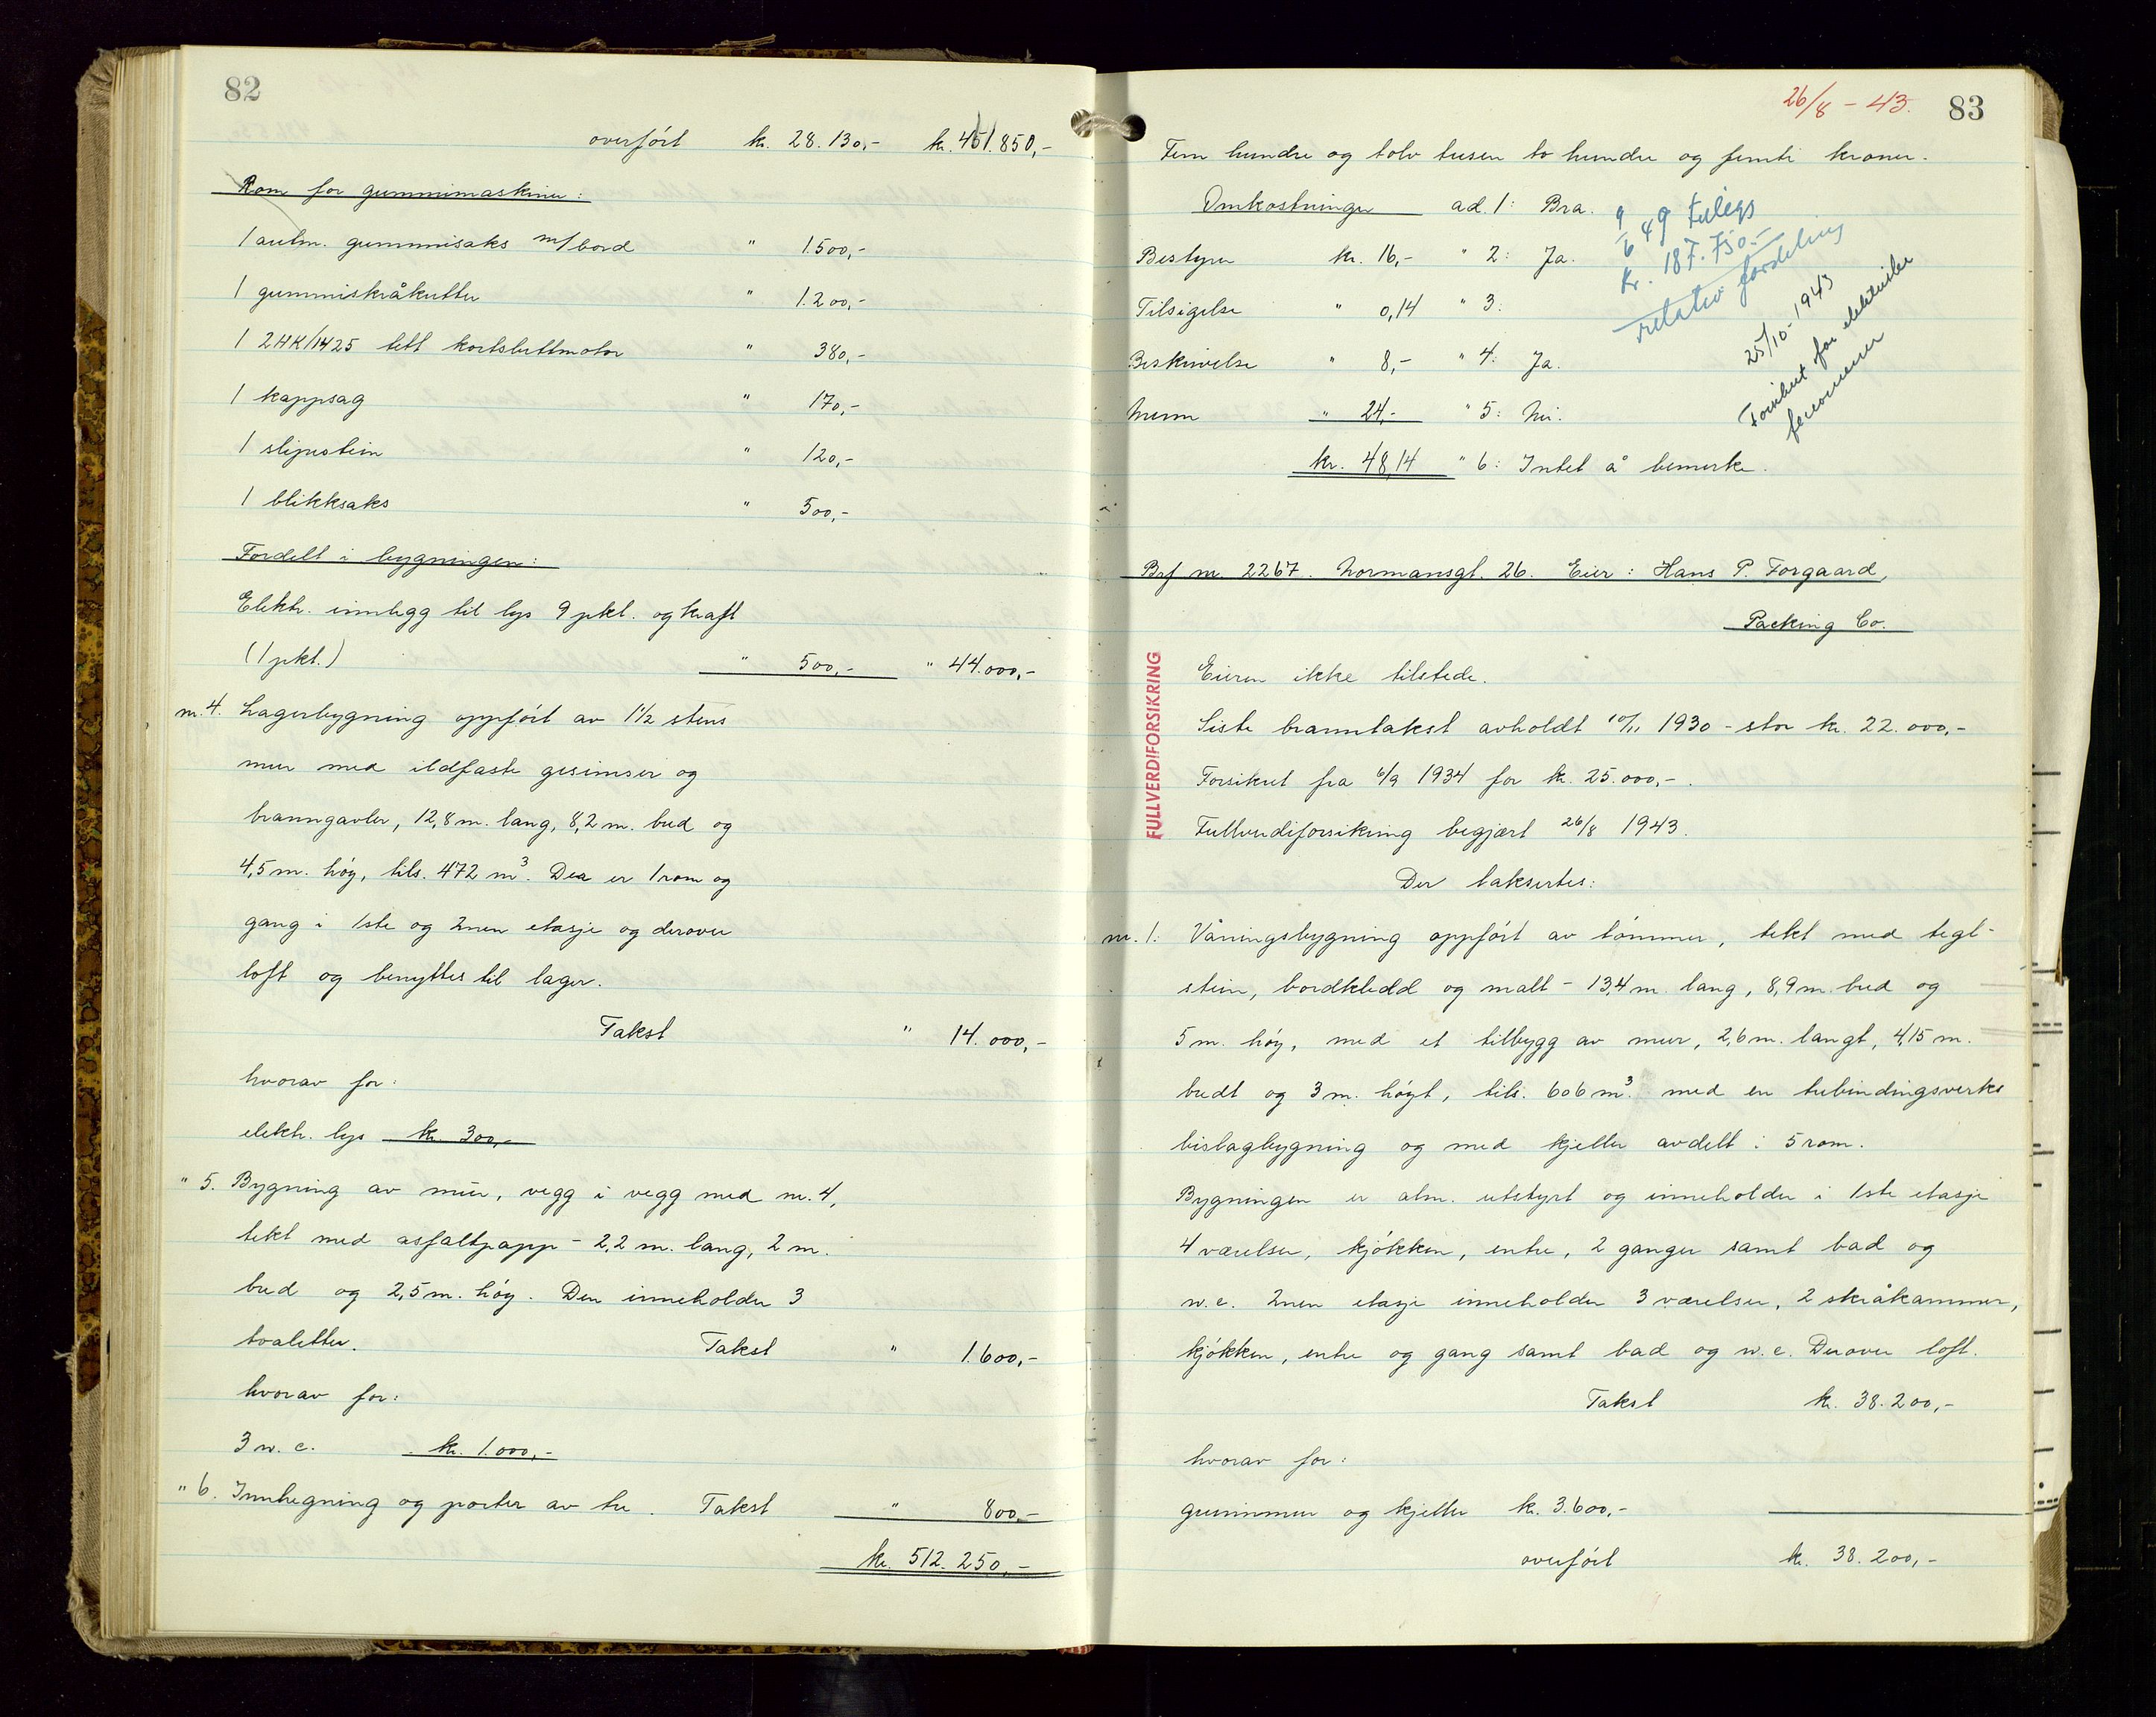 82
overført kr. 28.130,- kr. 451.850,-
Rom for gummimaskiner:
1 autm. gummisaks m/bord " 1.500,-
1 gummiskråkutter " 1.200,-
1 2HK/1425 tett kortsluttmotor " 380,-
1 kappsag " 170,-
1 slipestein " 120,-
1 blikksaks " 500,-
Fordelt i bygningen:
Elektr. innlegg til lys 9 pkt. og kraft
(1 pkt.) " 500,- " 44.000,-
nr. 4. Lagerbygning oppført av 1½ stens
mur med ildfaste gesimser og
branngavler, 12,8 m. lang, 8,2 m. bred og
4,5 m. høy, tils. 472 m³. Der er 1 rom og
gang i 1ste og 2nen etasje og derover
loft og benyttes til lager.
Takst " 14.000,-
hvorav for:
elektr. lys kr. 300,-
" 5. Bygning av mur, vegg i vegg med nr. 4,
tekt med asfaltpapp - 2,2 m. lang, 2 m.
bred og 2,5 m. høy. Den inneholder 3
toaletter. Takst " 1.600,-
hvorav for:
3 w. c. kr. 1.000,-
" 6. Innhegning og porter av tre. Takst " 800,-
kr. 512.250,-
26/8 - 43. 83
Fem hundre og tolv tusen to hundre og femti kroner.
Omkostninger ad. 1: Bra.
Bestyrer kr. 16,- " 2: Ja.
Tilsigelse " 0,14 " 3:
Beskrivelse " 8,- " 4: Ja.
Menn " 24,- " 5: Nei.
kr. 48,14 " 6: Intet å bemerke.
9/6 49 tillegs
kr. 187.750.-
relativ fordeling
25/10-1943
for elektriske
fenomener
Brf nr. 2267. Normansgt. 26. Eier: Hans P. Forgaard,
Packing Co.
FULLVERDIFORSIKRING
Eieren ikke tilstede.
Siste branntakst avholdt 10/11 1930 - stor kr. 22.000,-
Forsikret fra 6/9 1934 for kr. 25.000,-.
Fullverdiforsikring begjært 26/8 1943.
Der taksertes:
nr. 1: Våningsbygning oppført av tømmer, tekt med tegl-
stein, bordkledd og malt - 13,4 m. lang, 8,9 m. bred og
5 m. høy, med et tilbygg av mur, 2,6 m. langt, 4,15 m.
bredt og 3 m. høyt, tils. 606 m³. med en trebindingsverks
bislagbygning og med kjeller avdelt i 5 rom.
Bygningen er alm. utstyrt og inneholder i 1ste etasje
4 værelser, kjøkken, entre, 2 ganger samt bad og
w.c. 2nen etasje inneholder 3 værelser, 2 skråkammer,
kjøkken, entre og gang samt bad og w.c. Derover loft.
Takst kr. 38.200,-
hvorav for:
grunnmur og kjeller kr. 3.600,-
overført kr. 38.200,-